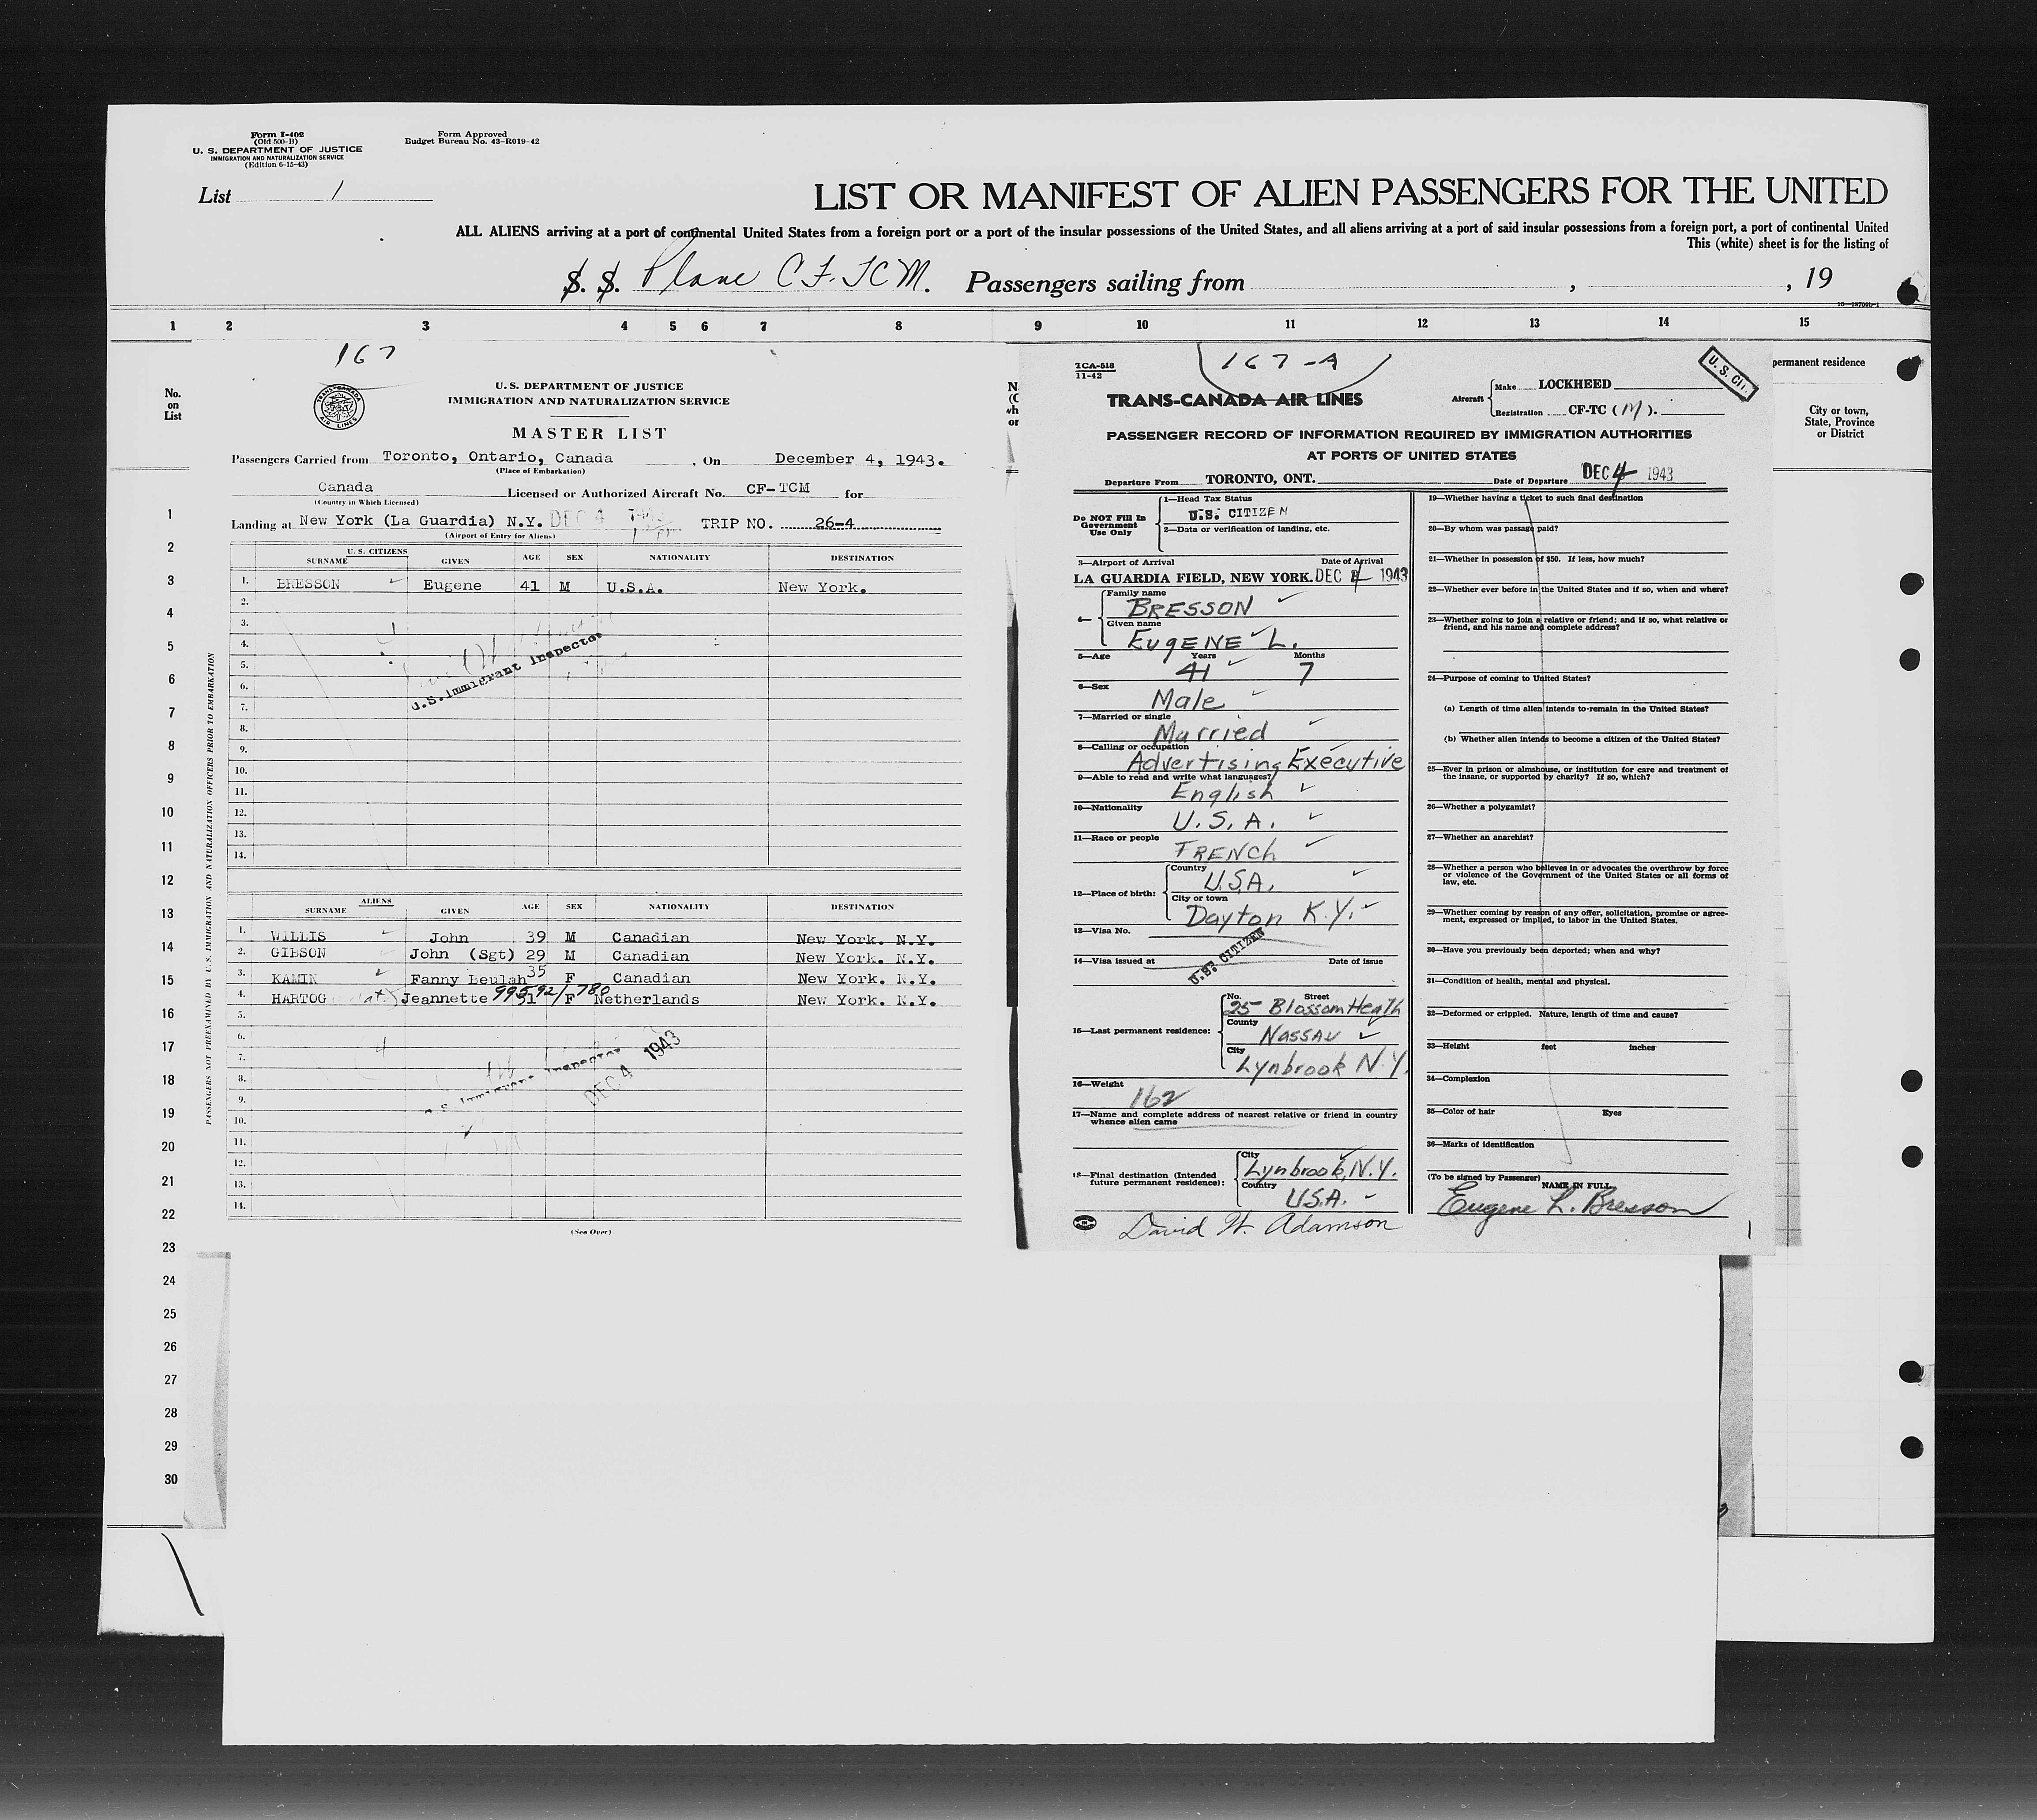 Form I-402
(Old 500-B)
U. S. DEPARTMENT OF JUSTICE
IMMIGRATION AND NATURALIZATION SERVICE
(Edition 6-15-43)
Form Approved
Budget Bureau No. 43-R019-42
List 1
LIST OR MANIFEST OF ALIEN PASSENGERS FOR THE UNITED
ALL ALIENS arriving at a port of continental United States from a foreign port or a port of the insular possessions of the United States, and all aliens arriving at a port of said insular possessions from a foreign port, a port of continental United
This (white) sheet is for the listing of
S. S. Plane CF-TCM. Passengers sailing from , , 19
1 2 3 4 5 6 7 8 9 10 11 12 13 14 15
No.
on
List
1
2
3
4
5
6
7
8
9
10
11
12
13
14
15
16
17
18
19
20
21
22
23
24
25
26
27
28
29
30
167
TRANS-CANADA AIR LINES
U. S. DEPARTMENT OF JUSTICE
IMMIGRATION AND NATURALIZATION SERVICE
MASTER LIST
Passengers Carried from Toronto, Ontario, Canada , On December 4, 1943.
(Place of Embarkation)
Canada Licensed or Authorized Aircraft No. CF-TCM for
(Country in Which Licensed)
Landing at New York (La Guardia) N.Y. DEC 4 1943 TRIP NO. 26-4
(Airport of Entry for Aliens)
PASSENGERS NOT PREEXAMINED BY U.S. IMMIGRATION AND NATURALIZATION OFFICERS PRIOR TO EMBARKATION
U. S. CITIZENS
SURNAME GIVEN AGE SEX NATIONALITY DESTINATION
1. BRESSON Eugene 41 M U.S.A. New York.
2.
3.
4.
5.
6.
7.
8.
9.
10.
11.
12.
13.
14.
U.S. Immigrant Inspector
ALIENS
SURNAME GIVEN AGE SEX NATIONALITY DESTINATION
1. WILLIS John 39 M Canadian New York. N.Y.
2. GIBSON John (Sgt) 29 M Canadian New York. N.Y.
3. KAMIN Fanny Beulah 35 F Canadian New York. N.Y.
4. HARTOG Jeannette 31 F Netherlands New York. N.Y.
5.
6.
7.
8.
9.
10.
11.
12.
13.
14.
4
U.S. Immigrant Inspector
DEC 4 1943
(See Over)
TCA-518
11-42
167-A
U. S. CIT.
TRANS-CANADA AIR LINES
Aircraft Make LOCKHEED
Registration CF-TC (M).
PASSENGER RECORD OF INFORMATION REQUIRED BY IMMIGRATION AUTHORITIES
AT PORTS OF UNITED STATES
Departure From TORONTO, ONT. Date of Departure DEC 4 1943
Do NOT Fill In
Government
Use Only
1—Head Tax Status
U.S. CITIZEN
2—Data or verification of landing, etc.
3—Airport of Arrival Date of Arrival
LA GUARDIA FIELD, NEW YORK. DEC 4 1943
4— Family name
BRESSON
Given name
EugENE L.
5—Age Years Months
41 7
6—Sex
Male
7—Married or single
Married
8—Calling or occupation
Advertising Executive
9—Able to read and write what languages?
English
10—Nationality
U.S.A.
11—Race or people
FRENCh
12—Place of birth: Country
U.S.A.
City or town
Dayton K.Y.
13—Visa No.
U.S. CITIZEN
14—Visa issued at Date of issue
15—Last permanent residence: No. Street
25 Blossom Heath
County
Nassau
City
Lynbrook N.Y.
16—Weight
162
17—Name and complete address of nearest relative or friend in country
whence alien came
18—Final destination (Intended
future permanent residence):
City
Lynbrook, N.Y.
Country
U.S.A.
David W. Adamson
19—Whether having a ticket to such final destination
20—By whom was passage paid?
21—Whether in possession of $50. If less, how much?
22—Whether ever before in the United States and if so, when and where?
23—Whether going to join a relative or friend; and if so, what relative or
friend, and his name and complete address?
24—Purpose of coming to United States?
(a) Length of time alien intends to remain in the United States?
(b) Whether alien intends to become a citizen of the United States?
25—Ever in prison or almshouse, or institution for care and treatment of
the insane, or supported by charity? If so, which?
26—Whether a polygamist?
27—Whether an anarchist?
28—Whether a person who believes in or advocates the overthrow by force
or violence of the Government of the United States or all forms of
law, etc.
29—Whether coming by reason of any offer, solicitation, promise or agree-
ment, expressed or implied, to labor in the United States.
30—Have you previously been deported; when and why?
31—Condition of health, mental and physical.
32—Deformed or crippled. Nature, length of time and cause?
33—Height feet inches
34—Complexion
35—Color of hair Eyes
36—Marks of identification
(To be signed by Passenger) NAME IN FULL
Eugene L. Bresson
1
permanent residence
City or town,
State, Province
or District